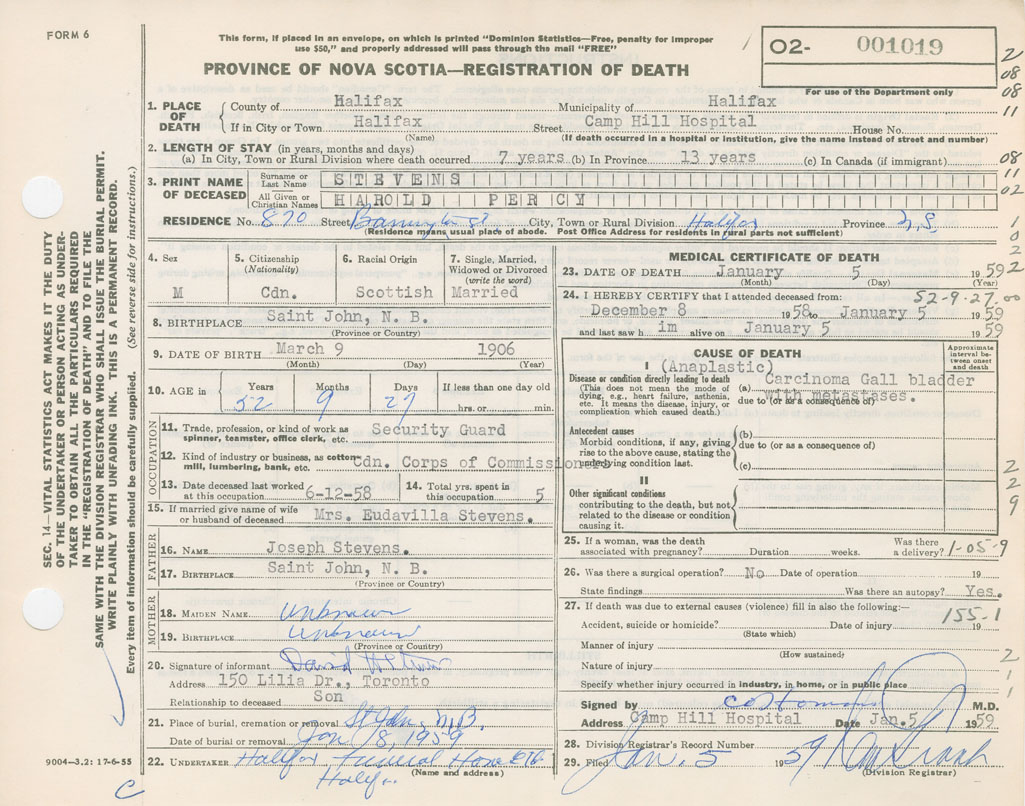 FORM 6
This form, if placed in an envelope, on which is printed "Dominion Statistics—Free, penalty for improper
use $50," and properly addressed will pass through the mail "FREE"
PROVINCE OF NOVA SCOTIA—REGISTRATION OF DEATH
O2- 001019
For use of the Department only
2
08
08
11
1. PLACE OF DEATH
County of Halifax Municipality of Halifax
If in City or Town Halifax Street Camp Hill Hospital House No.
(Name) (If death occurred in a hospital or institution, give the name instead of street and number)
2. LENGTH OF STAY (in years, months and days)
(a) In City, Town or Rural Division where death occurred 7 years (b) In Province 13 years (c) In Canada (if immigrant) 08
11
02
3. PRINT NAME OF DECEASED
Surname or Last Name STEVENS
All Given or Christian Names HAROLD PERCY
RESIDENCE No. 870 Street Barrington St City, Town or Rural Division Halifax Province N.S.
(Residence means usual place of abode. Post Office Address for residents in rural parts not sufficient)
1
0
2
2
4. Sex M
5. Citizenship (Nationality) Cdn.
6. Racial Origin Scottish
7. Single, Married, Widowed or Divorced (write the word) Married
8. BIRTHPLACE Saint John, N. B.
(Province or Country)
9. DATE OF BIRTH March 9 1906
(Month) (Day) (Year)
10. AGE in Years Months Days If less than one day old
52 9 27 hrs. or min.
OCCUPATION
11. Trade, profession, or kind of work as spinner, teamster, office clerk, etc. Security Guard
12. Kind of industry or business, as cotton-mill, lumbering, bank, etc. Cdn. Corps of Commissionaires
13. Date deceased last worked at this occupation 6-12-58
14. Total yrs. spent in this occupation 5
15. If married give name of wife or husband of deceased Mrs. Eudavilla Stevens.
FATHER
16. NAME Joseph Stevens.
17. BIRTHPLACE Saint John, N. B.
(Province or Country)
MOTHER
18. MAIDEN NAME Unknown
19. BIRTHPLACE Unknown
(Province or Country)
20. Signature of informant David
Address 150 Lilia Dr., Toronto
Relationship to deceased Son
21. Place of burial, cremation or removal St John, N.B.
Date of burial or removal Jan 8, 1959
22. UNDERTAKER Halifax Funeral Home
Halifax
(Name and address)
MEDICAL CERTIFICATE OF DEATH
23. DATE OF DEATH January 5 1959
(Month) (Day) (Year)
24. I HEREBY CERTIFY that I attended deceased from: 52-9-27.00
December 8 1958 to January 5 1959
and last saw him alive on January 5 1959
CAUSE OF DEATH
Approximate interval between onset and death
I (Anaplastic)
Disease or condition directly leading to death
(This does not mean the mode of dying, e.g., heart failure, asthenia, etc. It means the disease, injury, or complication which caused death.)
(a) Carcinoma Gall bladder with metastases.
due to (or as a consequence of)
Antecedent causes
Morbid conditions, if any, giving rise to the above cause, stating the underlying condition last.
(b)
due to (or as a consequence of)
(c)
II
Other significant conditions
contributing to the death, but not related to the disease or condition causing it.
2
2
9
25. If a woman, was the death associated with pregnancy? Duration weeks. Was there a delivery? 1-05-9
26. Was there a surgical operation? No Date of operation 19
State findings Was there an autopsy? Yes.
27. If death was due to external causes (violence) fill in also the following:—
155-1
Accident, suicide or homicide? Date of injury 19
(State which)
Manner of injury
(How sustained)
Nature of injury
Specify whether injury occurred in industry, in home, or in public place
2
1
1
Signed by M.D.
Address Camp Hill Hospital Date Jan.5 1959
28. Division Registrar's Record Number
29. Filed Jan. 5 1959
(Division Registrar)
SEC. 14—VITAL STATISTICS ACT MAKES IT THE DUTY
OF THE UNDERTAKER OR PERSON ACTING AS UNDER-
TAKER TO OBTAIN ALL THE PARTICULARS REQUIRED
IN THE "REGISTRATION OF DEATH" AND TO FILE THE
SAME WITH THE DIVISION REGISTRAR WHO SHALL ISSUE THE BURIAL PERMIT.
WRITE PLAINLY WITH UNFADING INK. THIS IS A PERMANENT RECORD.
Every item of information should be carefully supplied. (See reverse side for instructions.)
9004—3.2: 17-6-55
C